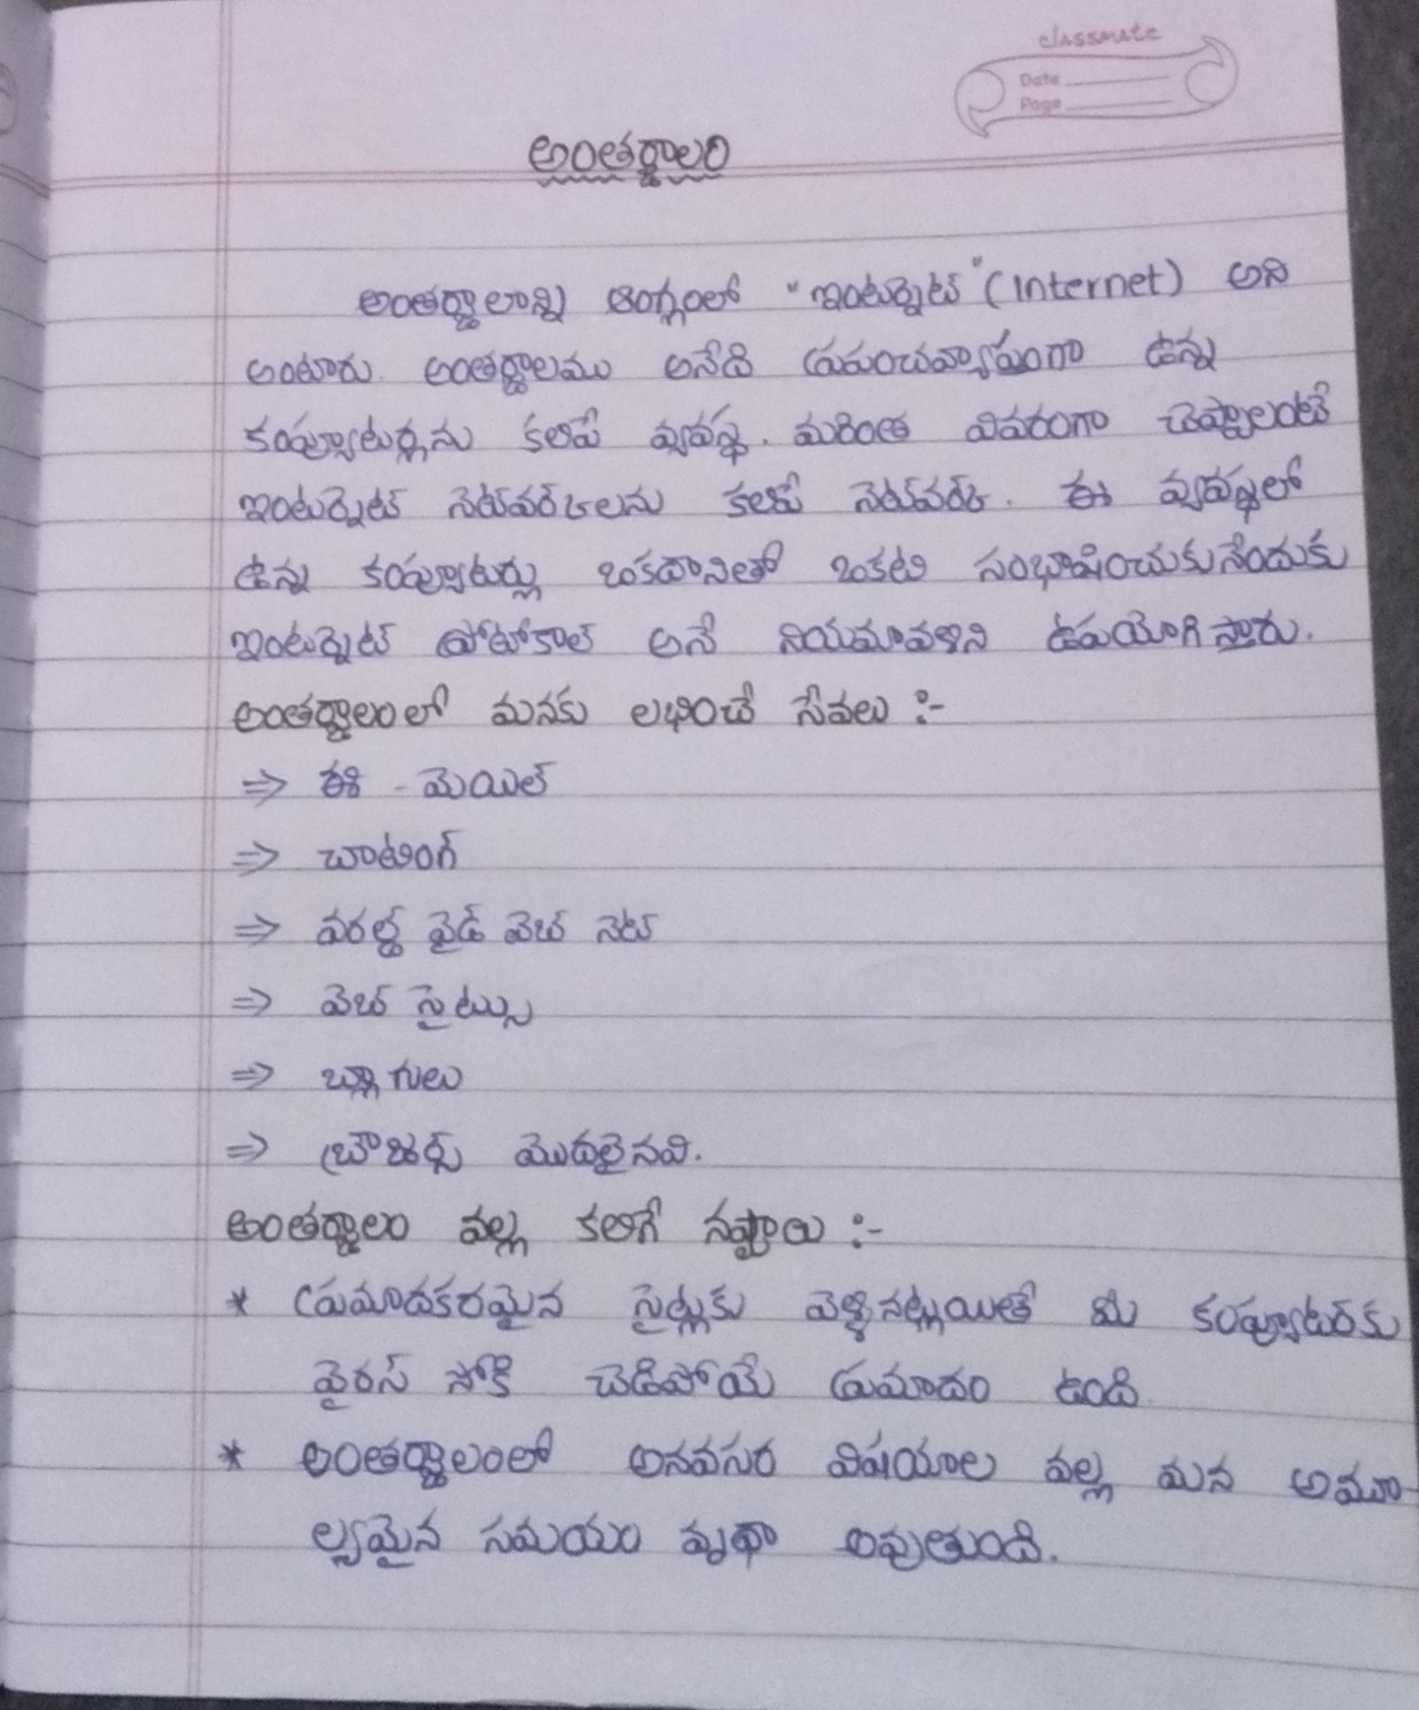 classmate
Date
Page
అంతర్జాలం
అంతర్జాలాన్ని ఆంగ్లంలో "ఇంటర్నెట్" (Internet) అని
అంటారు. అంతర్జాలము అనేది ప్రపంచవ్యాప్తంగా ఉన్న
కంప్యూటర్లను కలిపే వ్యవస్థ. మరింత వివరంగా చెప్పాలంటే
ఇంటర్నెట్ నెట్‌వర్క్‌లను కలిపే నెట్‌వర్క్. ఈ వ్యవస్థలో
ఉన్న కంప్యూటర్లు ఒకదానితో ఒకటి సంభాషించుకునేందుకు
ఇంటర్నెట్ ప్రోటోకాల్ అనే నియమావళిని ఉపయోగిస్తారు.
అంతర్జాలంలో మనకు లభించే సేవలు :-
⇒ ఈ - మెయిల్
⇒ చాటింగ్
⇒ వరల్డ్ వైడ్ వెబ్ నెట్
⇒ వెబ్ సైట్సు
⇒ బ్లాగులు
⇒ బ్రౌజర్స్ మొదలైనవి.
అంతర్జాలం వల్ల కలిగే నష్టాలు :-
* ప్రమాదకరమైన సైట్లకు వెళ్ళినట్లయితే మీ కంప్యూటర్‌కు
వైరస్ సోకి చెడిపోయే ప్రమాదం ఉంది.
* అంతర్జాలంలో అనవసర విషయాల వల్ల మన అమూ
ల్యమైన సమయం వృథా అవుతుంది.